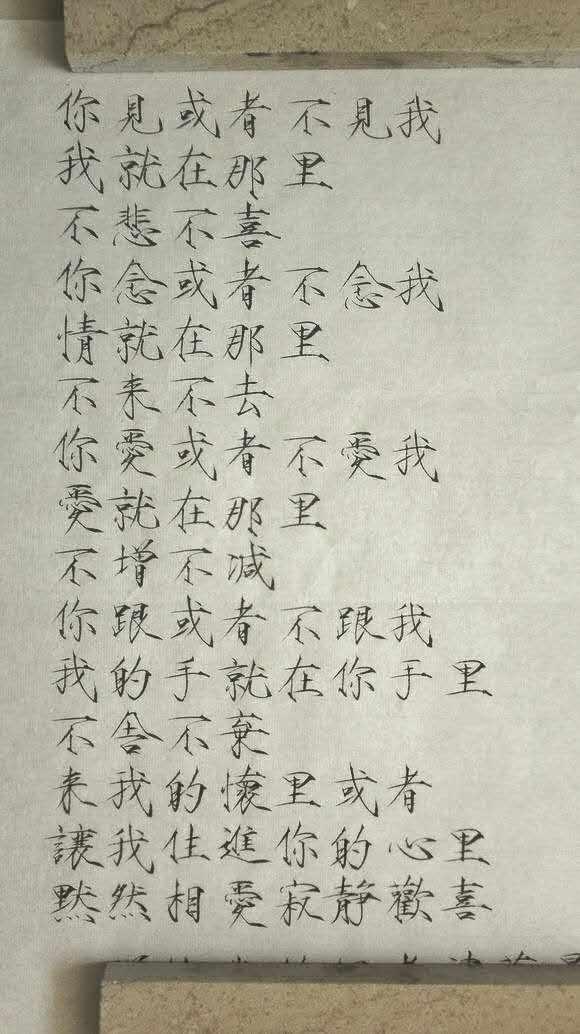 你見或者不見我
我就在那里
不悲不喜
你念或者不念我
情就在那里
不来不去
你愛或者不愛我
愛就在那里
不增不减
你跟或者不跟我
我的手就在你手里
不舍不棄
来我的懷里或者
讓我住進你的心里
黙然相愛寂静歡喜